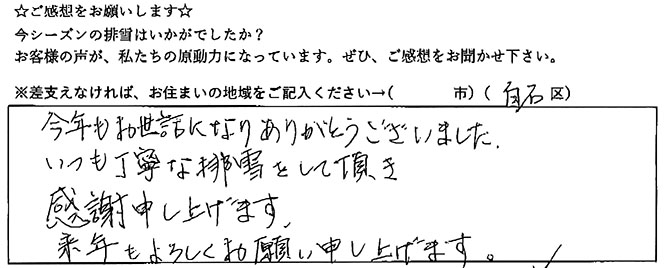 ☆ご感想をお願いします☆
今シーズンの排雪はいかがでしたか？
お客様の声が、私たちの原動力になっています。ぜひ、ご感想をお聞かせ下さい。
※差支えなければ、お住まいの地域をご記入ください→(　　　市)(白石区)
今年もお世話になりありがとうございました.
いつも丁寧な排雪をして頂き
感謝申し上げます.
来年もよろしくお願い申し上げます。